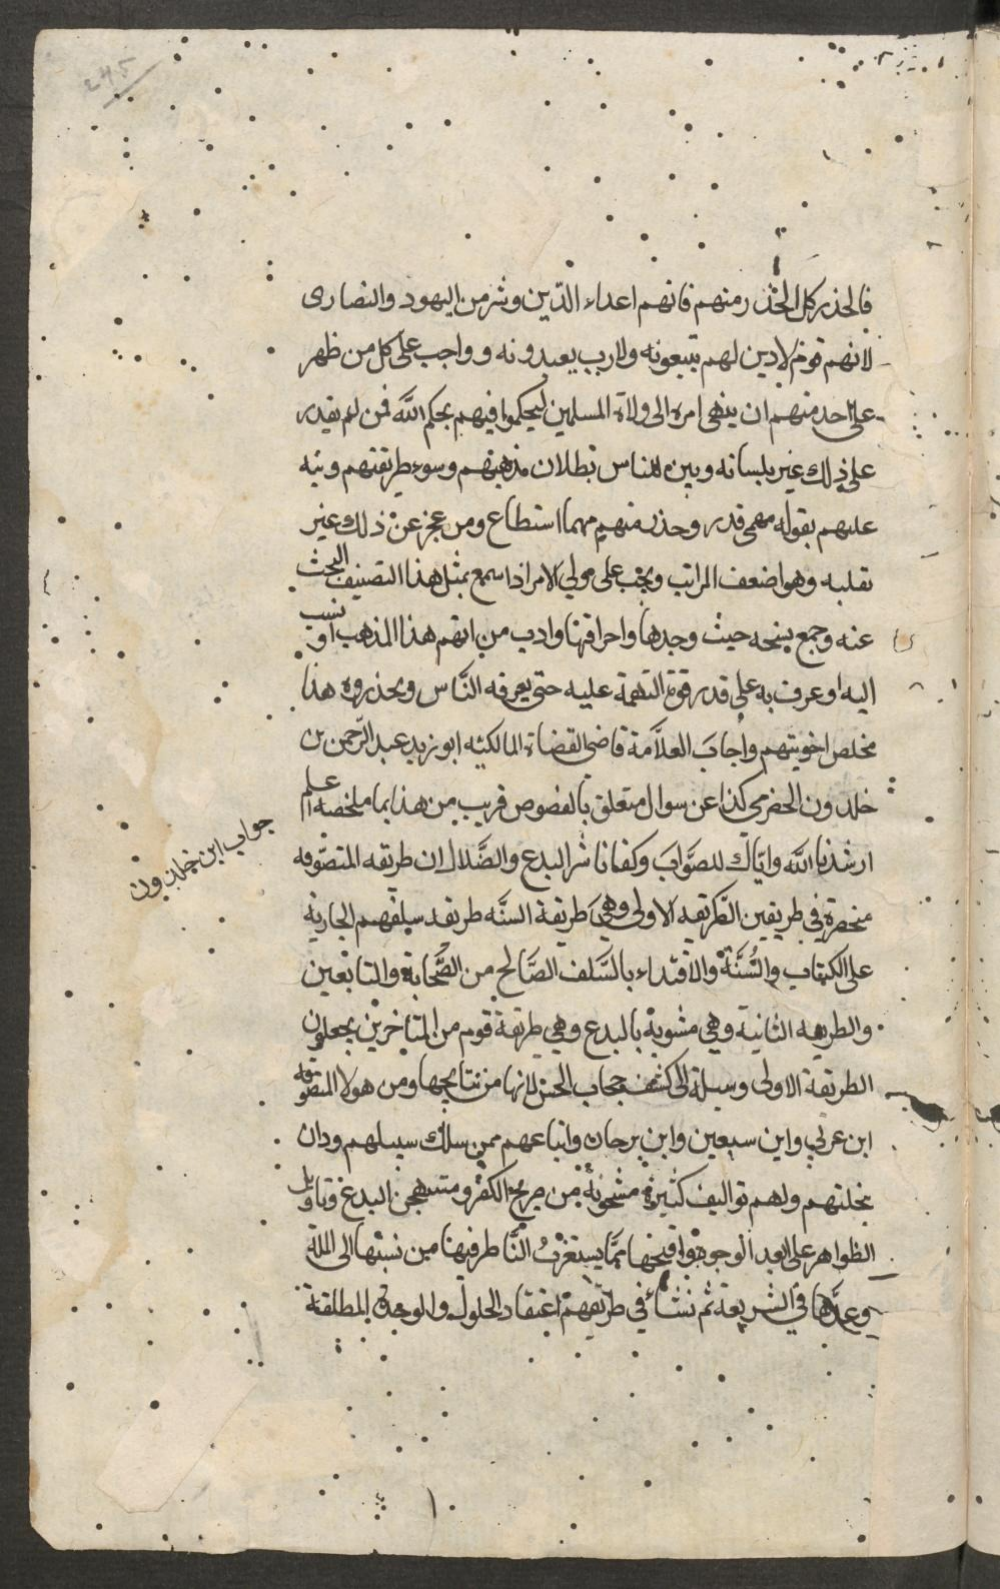 ٢٤٥
فالحذر كل الحذر منهم فانهم اعداء الدّين وشر من اليهود والنصارى
لانهم قوم لا دين لهم يتبعونه ولا رب يعبدونه وواجب على كل من ظهر
على احد منهم ان ينهى امره الى ولاة المسلمين ليحكموا فيهم بحكم اللّه فمن لم يقدر
على ذلك غير بلسانه وبين للناس بطلان مذهبهم وسوء طريقتهم ونبه
عليهم بقوله مهمى قدر وحذر منهم مهما استطاع ومن عجز عن ذلك غير
بقلبه وهو اضعف المراتب ويجب على مولي الامر اذا سمع بمثل هذا التصنيف البحث
عنه وجمع نسخه حيث وجدها واحراقها وادب من اتهم هذا المذهب او نسب
اليه او عرف به على قدر قوة التهمة عليه حتى يعرفه النّاس ويحذروه هذا
مخلص اجوبتهم واجابَ العلاّمة قاضى القضاة المالكيه ابو زيد عبد الرّحمن بن
خلدون الحضرمي كذا عن سوال متعلق بالفصوص قريب من هذا بما ملخصه اعلم
ارشدنا اللّه واياك للصّوابَ وكفانا شر البدع والضّلال ان طريقه المتصّوفه
منحصرة في طريقين الطّريقه الاولى وهيَ طريقة السنّه طريقه سلفهم الجاريه
على الكتاب والسُّنَّة والاقتداء بالسّلف الصّالح من الصّحابة والتابعين
والطريقه الثانية وهي مشوبة بالبدع وهي طريقة قوم من المتاخرين يجعلون
الطريقة الاولى وسيلة الى كشف حجاب الحس لانها من نتايجها ومن هولا المتصوفه
ابن عربي وابن سبعين وابن برجان واتباعهم ممن سلك سبيلهم ودان
بنحلتهم ولهم تواليف كثيرة مشحونة من صريح الكفر ومستهجن البدع وتاويل
الظواهر على ابعد الوجوه واقبحها ممّا يستغربُ النّاظر فيها من نسبتها الى الملة
وعدّها في الشريعة ثم نشأ في طريقهم اعتقاد الحلول والوحدة المطلقة
جواب ابن خلدون